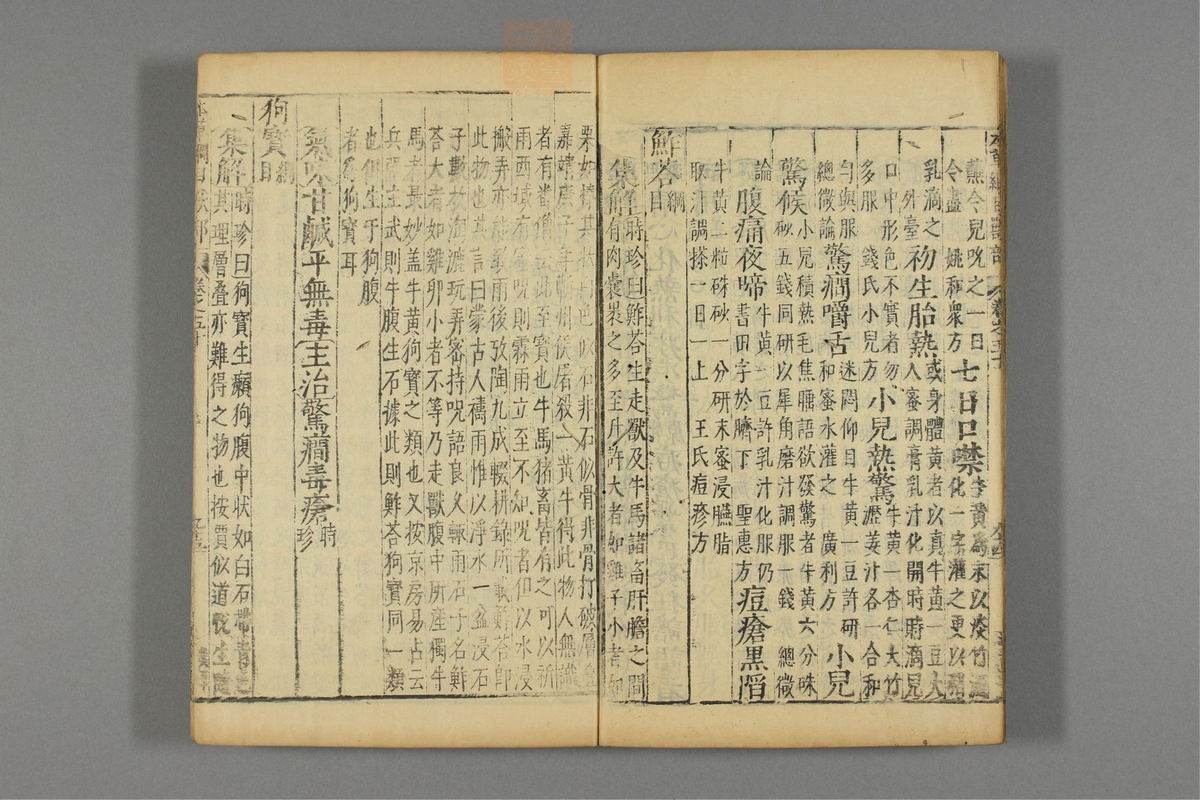 蘸令兒吮之一日
令盡 姚和衆方 七日口噤 牛黃爲末以淡竹瀝
化一字灌之更以猪
乳滴之
外臺 初生胎熱 或身體黃者以真牛黃一豆大
入蜜調膏乳汁化開時時滴兒
口中形色不實者勿
多服 錢氏小兒方 小兒熱驚 牛黃一杏仁大竹
瀝姜汁各一合和
勻與服
總微論 驚癇嚼舌 迷悶仰目牛黃一豆許研
和蜜水灌之 廣利方 小兒
驚候 小兒積熱毛焦睡語欲發驚者牛黃六分硃
砂五錢同研以犀角磨汁調服一錢 總微
論 腹痛夜啼 牛黃一豆許乳汁化服仍
書田字於臍下 聖惠方 痘瘡黑陷
牛黃二粒硃砂一分研末蜜浸臙脂
取汁調搽一日一上 王氏痘疹方
鮓荅 綱目
集解 時珍曰鮓荅生走獸及牛馬諸畜肝膽之間
有肉囊裹之多至升許大者如雞子小者如
栗如榛其狀白色似石非石似骨非骨打破層疊
嘉靖庚子年蘄州侯屠殺一黃牛得此物人無識
者有番僧云此至寶也牛馬猪畜皆有之可以祈
雨西域有密咒則霖雨立至不知咒者但以水浸
搬弄亦能致雨後攷陶九成輟耕錄所載鮓荅即
此物也其言曰蒙古人禱雨惟以淨水一盆浸石
子數枚淘漉玩弄密持咒語良久輒雨石子名鮓
荅大者如雞卵小者不等乃走獸腹中所產獨牛
馬者最妙盖牛黃狗寶之類也又按京房易占云
兵强主武則牛腹生石據此則鮓荅狗寶同一類
也但生于狗腹
者爲狗寶耳
氣味甘鹹平無毒主治驚癇毒瘡 時珍
狗寶 綱目
集解 時珍曰狗寶生癩狗腹中狀如白石帶青色
其理層疊亦難得之物也按賈似道悅生隨